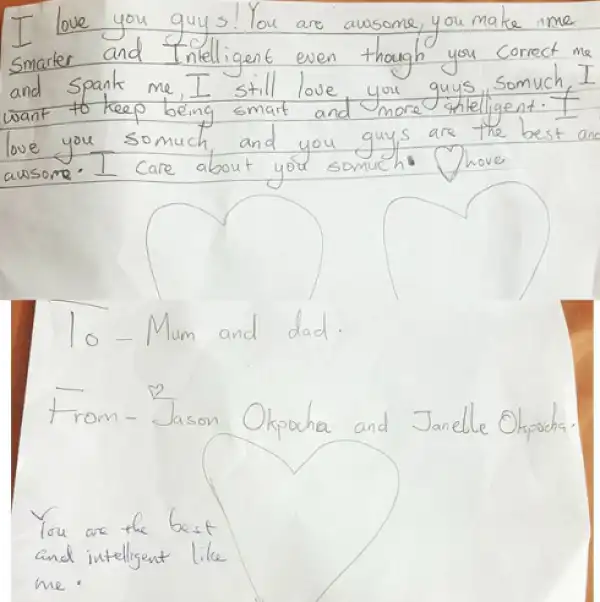 I love you guys! You are awsome, you make me
smarter and Intelligent even though you correct me
and spank me, I still love you guys somuch, I
want to keep being smart and more intelligent. I
love you somuch, and you guys are the best and
awsome. I care about you somuch. love
To - Mum and dad.
From - Jason Okpocha and Janelle Okpocha.
You are the best
and intelligent like
me.